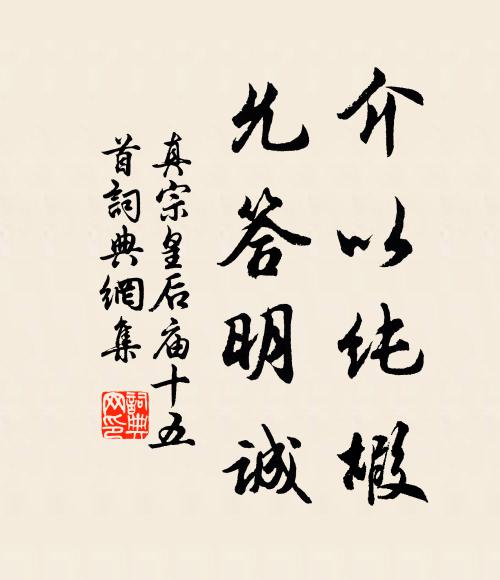 介以纯嘏
允答明誠
真宗皇后庙十五
首詞典網集
詞典
网印